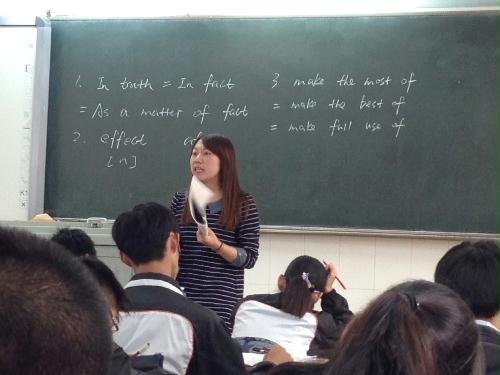 1. In truth = In fact
= As a matter of fact
2. effect
[n]
3 make the most of
= make the best of
= make full use of